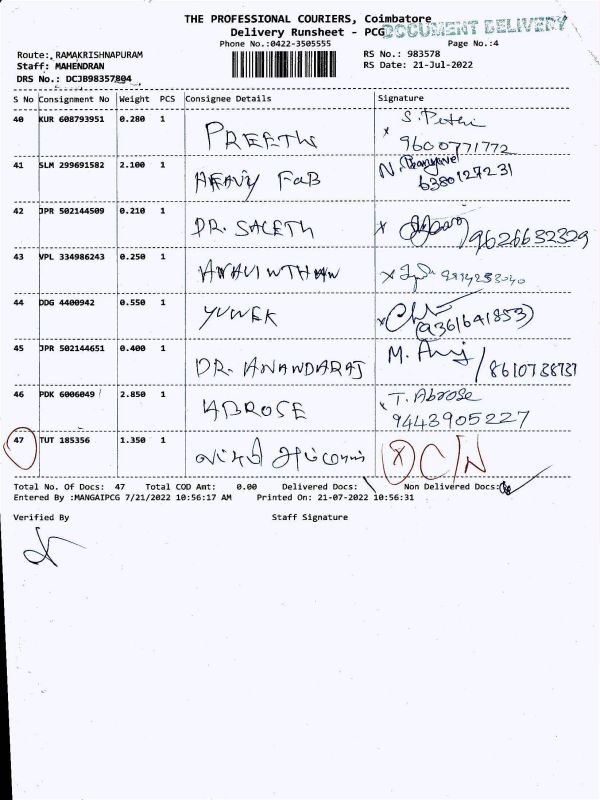 THE PROFESSIONAL COURIERS, Coimbatore
Delivery Runsheet - PCG
DOCUMENT DELIVERY
Phone No.:0422-3505555
Page No.:4
Route: RAMAKRISHNAPURAM
RS No.: 983578
Staff: MAHENDRAN
RS Date: 21-Jul-2022
DRS No.: DCJB98357804
S No Consignment No Weight PCS Consignee Details Signature
40 KUR 608793951 0.280 1 PREETHI S. Pethi
x 9600771772
41 SLM 299691582 2.100 1 HEAVY FaB N.
6380127231
42 JPR 502144509 0.210 1 DR. SACETH x 9626632329
43 VPL 334986243 0.250 1 x
44 DDG 4400942 0.550 1 x
(9361641853)
45 JPR 502144651 0.400 1 DR. ANANDARAJ M. / 8610738737
46 PDK 6006049 2.850 1 ABROSE T. Abrose
9443905227
47 TUT 185356 1.350 1 x DC/N
Total No. Of Docs: 47 Total COD Amt: 0.00 Delivered Docs: Non Delivered Docs:
Entered By :MANGAIPCG 7/21/2022 10:56:17 AM Printed On: 21-07-2022 10:56:31
Verified By Staff Signature